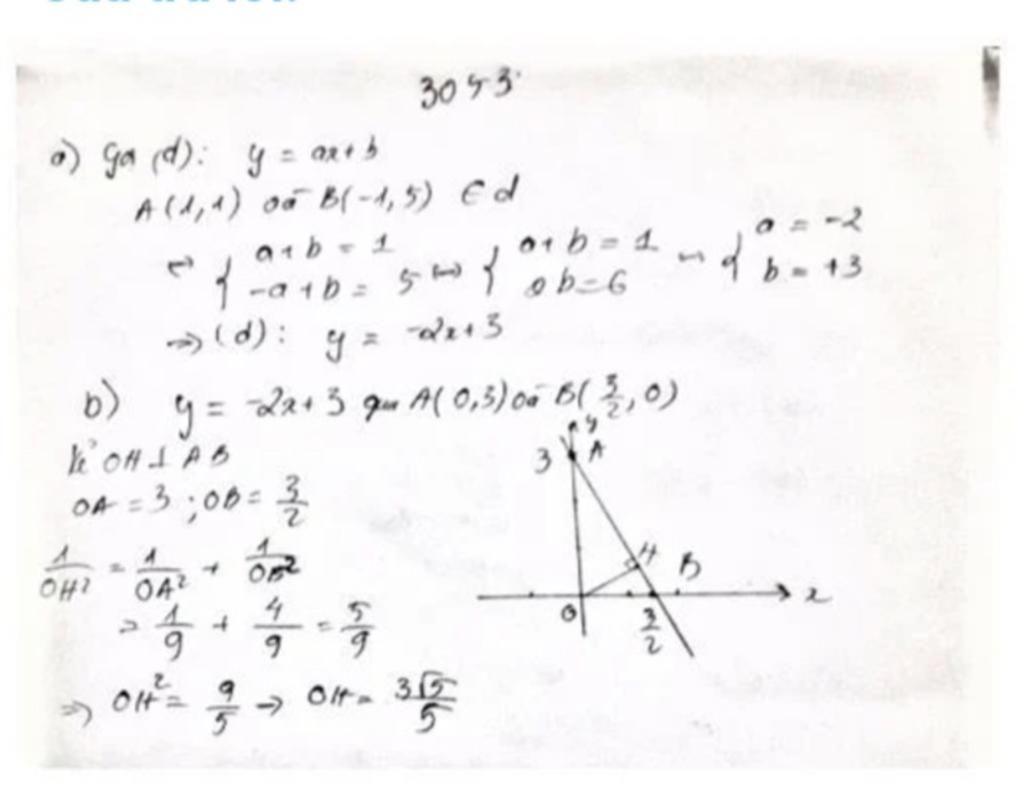 3043
a) Gọi (d): y = ax + b
A(1,1) và B(-1,5) ∈ d
⇔ { a+b = 1 ; -a+b = 5 ⇔ { a+b = 1 ; 2b=6 ⇔ { a = -2 ; b = +3
⇒ (d): y = -2x+3
b) y = -2x+3 qua A(0,3) và B(3/2, 0)
Kẻ OH⊥AB
OA = 3 ; OB = 3/2
1/OH² = 1/OA² + 1/OB²
= 1/9 + 4/9 = 5/9
⇒ OH² = 9/5 → OH = 3√5/5
y
3 A
H
B
O 3/2 x